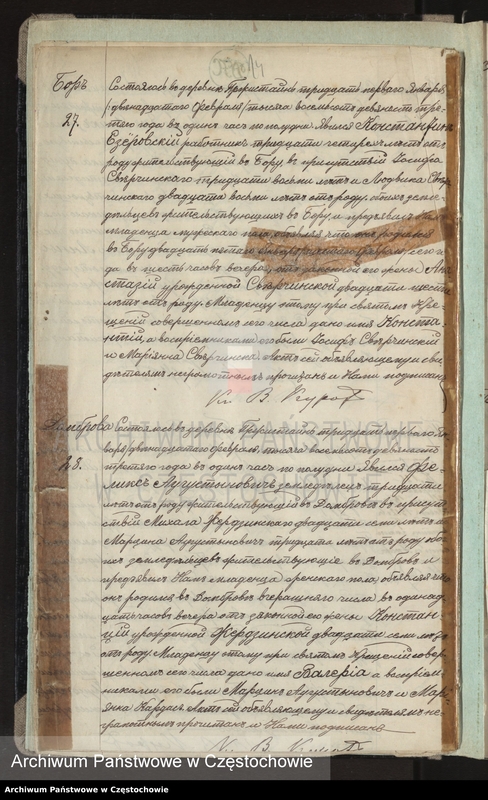 Боръ
27.
Состоялось въ деревнѣ Пржистайнь тридцать перваго Января
/двѣнадцатаго Февраля/ тысяча восемьсотъ девяносто тре-
тяго года въ одинъ часъ по полудни. Явился Константинъ
Езёровскій работникъ тридцати четырехъ лѣтъ отъ
роду жительствующій въ Бору въ присутствіи Іосифа
Свѣрчинскаго тридцати восьми лѣтъ и Людвика Свѣр-
чинскаго двадцати восьми лѣтъ отъ роду обоихъ земле-
дѣльцевъ жительствующихъ въ Бору и предъявилъ Намъ
младенца мужескаго пола, объявляя что онъ родился
въ Бору двадцать пятаго Января сего го-
да въ шесть часовъ вечера отъ законной его жены Ана-
стазіи урожденной Свѣрчинской двадцати шести
лѣтъ отъ роду. Младенцу этому при святомъ Кре-
щеніи совершенномъ сего числа дано имя Конста-
нтій, а воспріемниками его были Іосифъ Свѣрчинскій
и Маріанна Свѣрчинска. Актъ сей объявляющему и сви-
дѣтелямъ неграмотнымъ прочитанъ и Нами подписанъ
Кс. В.
Домброва
28.
Состоялось въ деревнѣ Пржистайнь тридцать перваго Ян-
варя /двѣнадцатаго Февраля/ тысяча восемьсотъ девяносто
третяго года въ одинъ часъ по полудни. Явился Фе-
ликсъ Аугустыновичъ земледѣлецъ тридцати
лѣтъ отъ роду жительствующій въ Домбровѣ въ присут-
ствіи Михала Жердзинскаго двадцати семи лѣтъ и
Марцина Аугустыновичъ тридцати лѣтъ отъ роду обо-
ихъ земледѣльцевъ жительствующіе въ Домбровѣ и
предъявилъ Намъ младенца женскаго пола, объявляя что
онъ родился въ Домбровѣ вчерашняго числа въ одинад-
цать часовъ вечера отъ законной его жены Констан-
ціи урожденной Жердзинской двадцати семи лѣтъ
отъ роду. Младенцу этому при святомъ Крещеніи совер-
шенномъ сего числа дано имя Валерія а воспріем-
никами его были Марцинъ Аугустыновичъ и Марі-
янна Кардасъ. Актъ сей объявляющему и свидѣтелямъ не-
грамотнымъ прочитанъ и Нами подписанъ
Кс. В.
Archiwum Państwowe w Częstochowie
Archiwum Państwowe w Częstochowie